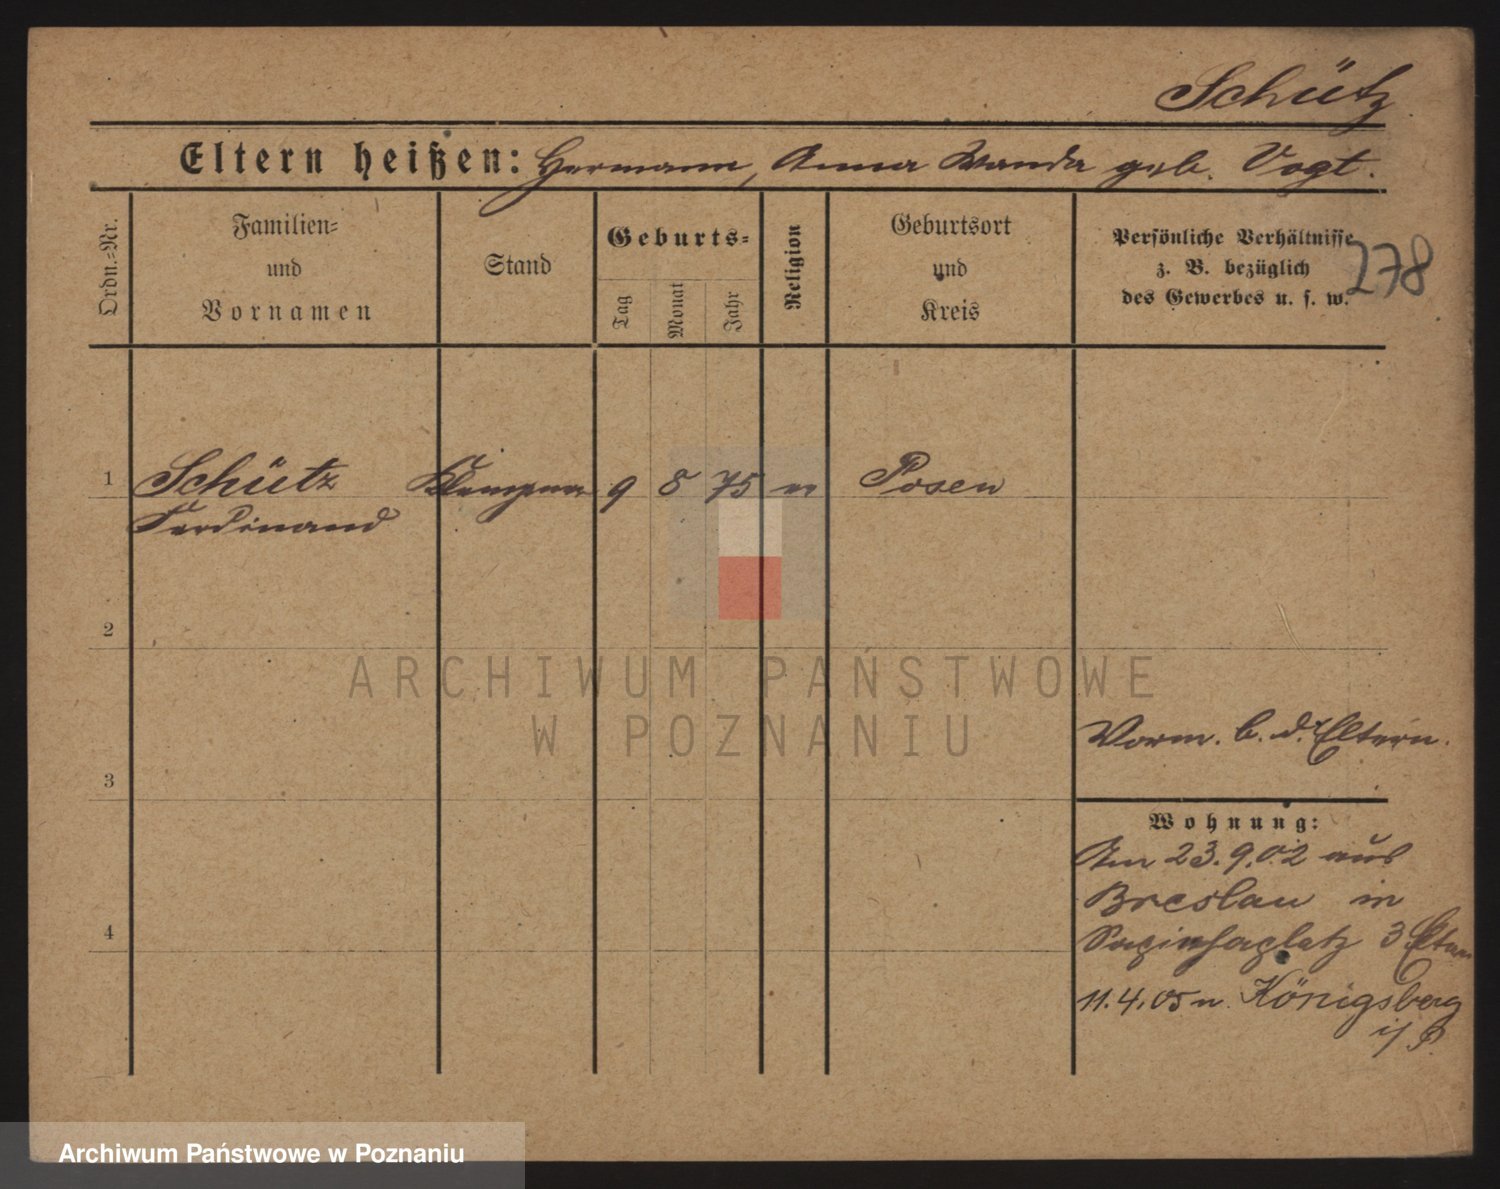 Schütz
Eltern heißen: Hermann, Anna Wanda geb. Vogt.
Ordn.-Nr.
Familien-
und
Vornamen
Stand
Geburts-
Tag
Monat
Jahr
Religion
Geburtsort
und
Kreis
Persönliche Verhältnisse
z. B. bezüglich
des Gewerbes u. s. w.
278
1 Schütz Klempner 9 8 75 Posen
Ferdinand
2
ARCHIWUM PAŃSTWOWE
W POZNANIU
Vorm. b. d. Eltern.
3
Wohnung:
Am 23.9.02 aus
Breslau in
4
Sapiehaplatz 3 Eltern
11.4.05 n. Königsberg
i/P.
Archiwum Państwowe w Poznaniu